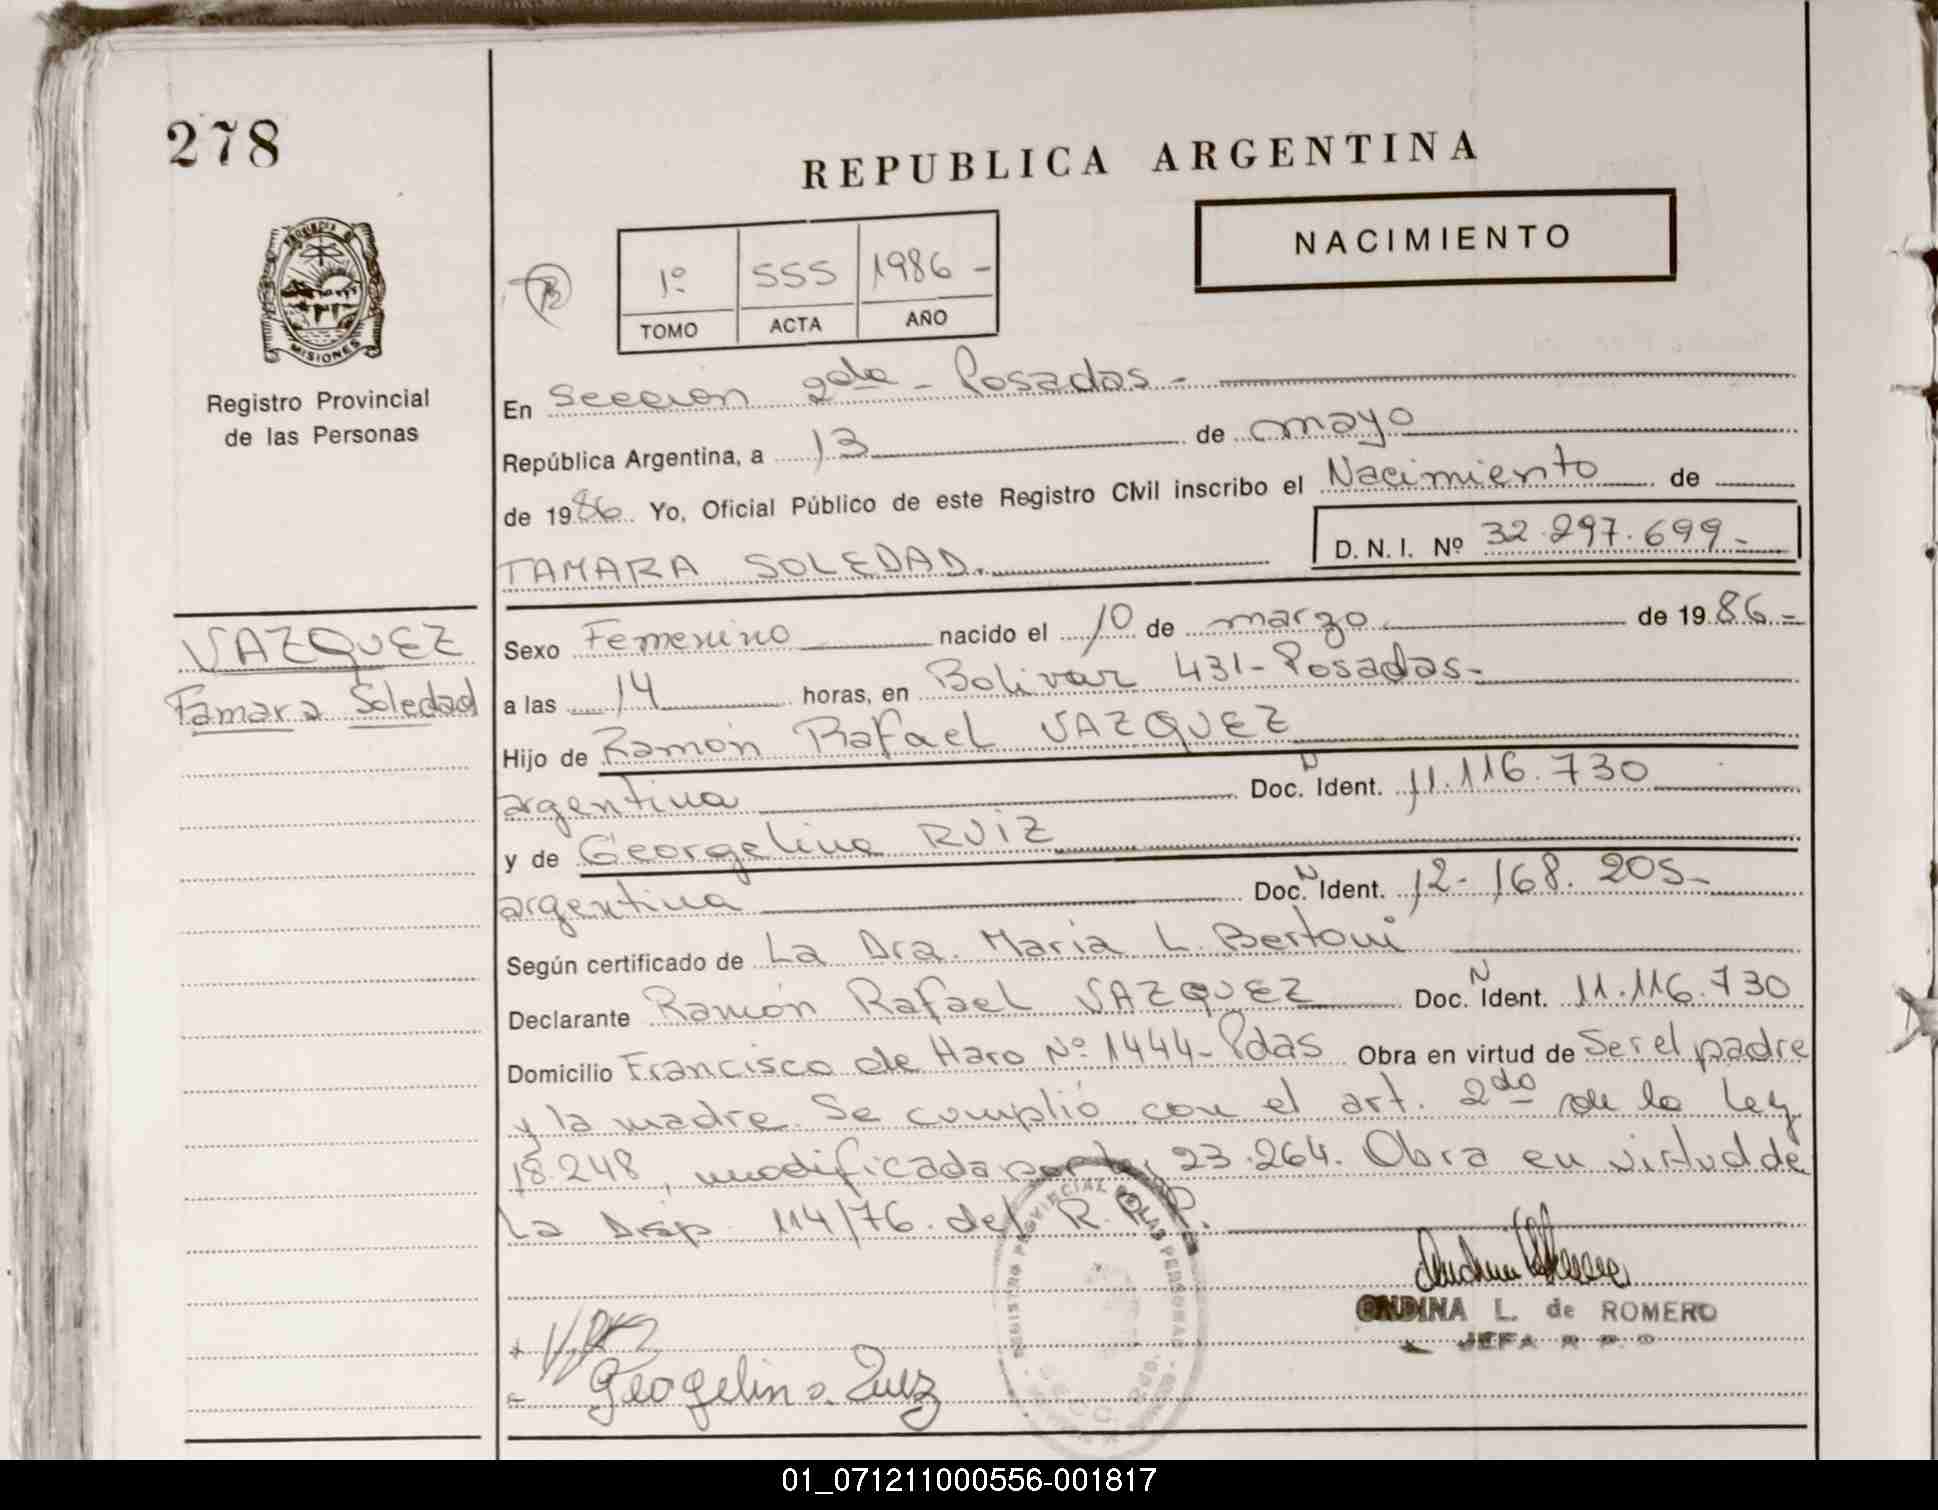 278
REPUBLICA ARGENTINA
NACIMIENTO
PROVINCIA DE
MISIONES
Registro Provincial
de las Personas
1º 555 1986 -
TOMO ACTA AÑO
En Sección 2da - Posadas -
República Argentina, a 13 de mayo
de 1986. Yo, Oficial Público de este Registro Civil inscribo el Nacimiento de
D. N. I. Nº 32.297.699 -
TAMARA SOLEDAD.
VAZQUEZ
Tamara Soledad
Sexo Femenino nacido el 10 de marzo de 1986.-
a las 14 horas, en Bolivar 431 - Posadas -
Hijo de Ramón Rafael VAZQUEZ
argentina Doc. N Ident. 11.116.730
y de Georgelina RUIZ
argentina Doc. N Ident. 12.168.205 -
Según certificado de La Dra. Maria L. Bertoni
Declarante Ramón Rafael VAZQUEZ Doc. N Ident. 11.116.730
Domicilio Francisco de Haro Nº 1444 - Pdas Obra en virtud de Ser el padre
y la madre. Se cumplió con el art. 2do de la Ley
18.248, modificada por la 23.264. Obra en virtud de
La Disp. 114/76. del R.P.P.
REGISTRO PROVINCIAL DE LAS PERSONAS
ONDINA L. de ROMERO
JEFA R. P. P.
Geogelina Ruiz
01_071211000556-001817